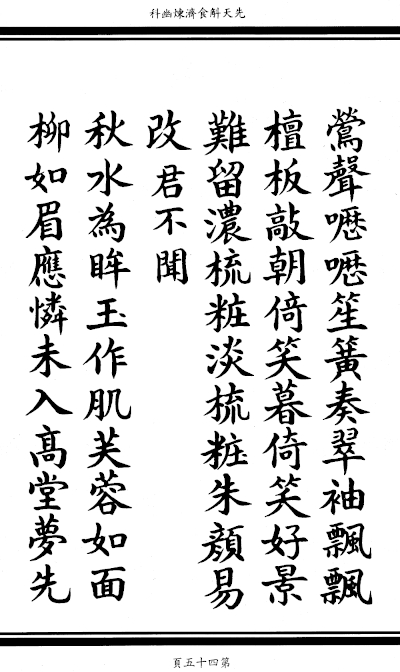 先天斛食濟煉幽科
鶯聲嚦嚦笙簧奏翠袖飄飄
檀板敲朝倚笑暮倚笑好景
難留濃梳粧淡梳粧朱顏易
改君不聞
秋水為眸玉作肌芙蓉如面
柳如眉應憐未入高堂夢先
第四十五頁